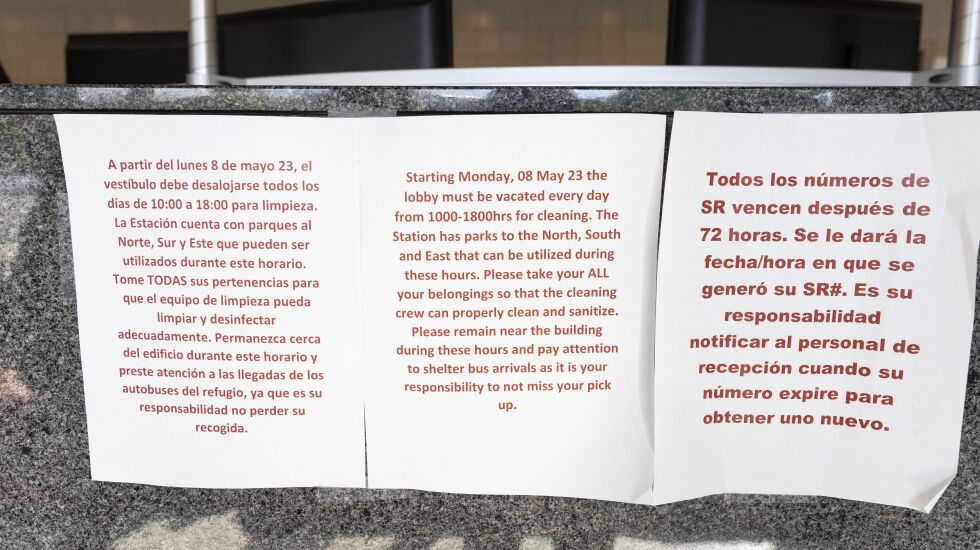 A partir del lunes 8 de mayo 23, el
vestíbulo debe desalojarse todos los
días de 10:00 a 18:00 para limpieza.
La Estación cuenta con parques al
Norte, Sur y Este que pueden ser
utilizados durante este horario.
Tome TODAS sus pertenencias para
que el equipo de limpieza pueda
limpiar y desinfectar
adecuadamente. Permanezca cerca
del edificio durante este horario y
preste atención a las llegadas de los
autobuses del refugio, ya que es su
responsabilidad no perder su
recogida.
Starting Monday, 08 May 23 the
lobby must be vacated every day
from 1000-1800hrs for cleaning. The
Station has parks to the North, South
and East that can be utilized during
these hours. Please take your ALL
your belongings so that the cleaning
crew can properly clean and sanitize.
Please remain near the building
during these hours and pay attention
to shelter bus arrivals as it is your
responsibility to not miss your pick
up.
Todos los números de
SR vencen después de
72 horas. Se le dará la
fecha/hora en que se
generó su SR#. Es su
responsabilidad
notificar al personal de
recepción cuando su
número expire para
obtener uno nuevo.